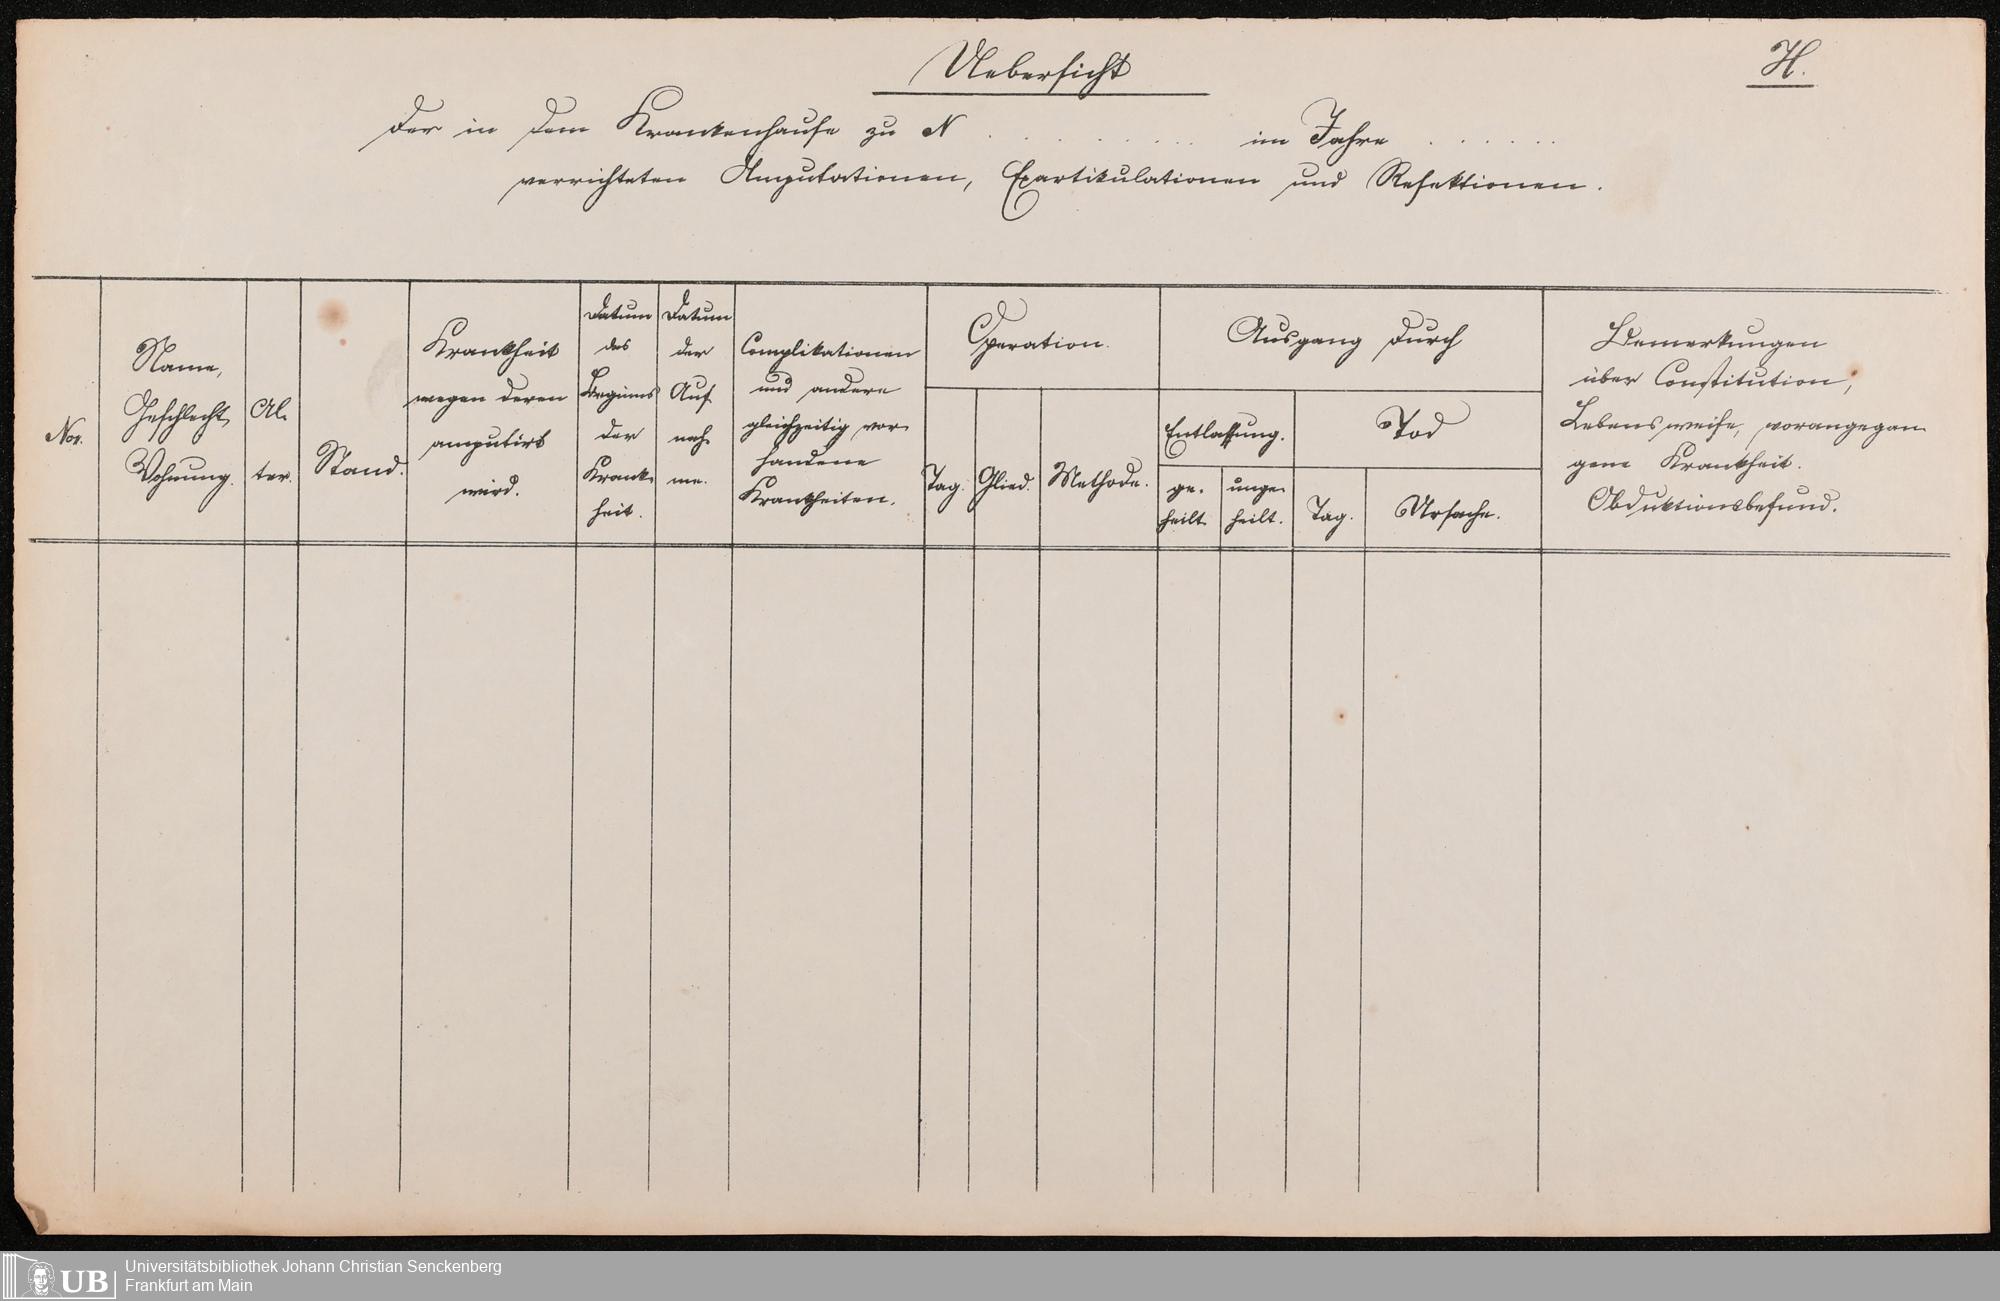 Uebersicht
H.
der in dem Krankenhause zu N . . . . . . . im Jahre . . . . . .
verrichteten Amputationen, Exartikulationen und Resektionen.
Nor.
Name,
Geschlecht,
Wohnung.
Al-
ter.
Stand.
Krankheit
wegen deren
amputirt
wird.
Datum
des
Beginns
der
Krank-
heit.
Datum
der
Auf-
nah-
me.
Complikationen
und andere
gleichzeitig vor-
handene
Krankheiten.
Operation.
Tag.
Glied.
Methode.
Ausgang durch
Entlassung.
ge-
heilt.
unge-
heilt.
Tod
Tag.
Ursache.
Bemerkungen
über Constitution,
Lebensweise, vorangegan-
gene Krankheit.
Obduktionsbefund.
UB
Universitätsbibliothek Johann Christian Senckenberg
Frankfurt am Main